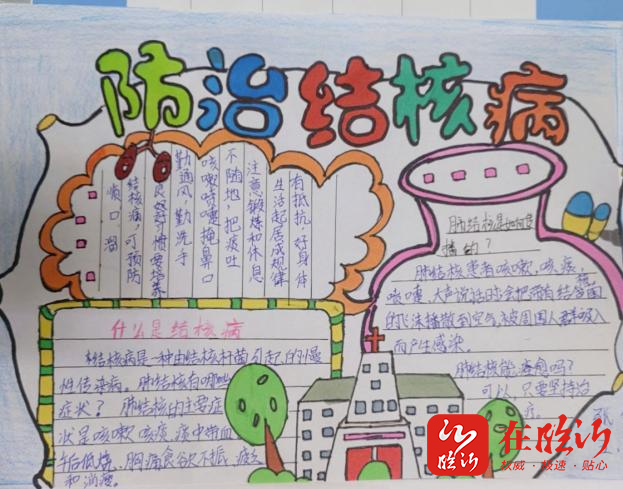 防治结核病
顺口溜
结核病，可预防
良好习惯要培养
勤通风，勤洗手
咳嗽喷嚏掩鼻口
不随地把痰吐
注意锻炼和休息
生活起居成规律
有抵抗，好身体
什么是结核病
结核病是一种由结核杆菌引起的慢
性传染病。肺结核有哪些
症状？肺结核的主要症
状是咳嗽咳痰，痰中带血
午后低烧、胸痛食欲不振、疲乏
和消瘦。
肺结核是如何传
播的？
肺结核患者咳嗽、咳痰、
喷嚏、大声说话时会把带有结核菌
的飞沫播散到空气，被周围人群吸入
而产生感染。
肺结核能痊愈吗？
可以，只要坚持治
在临沂
临沂
权威·极速·贴心